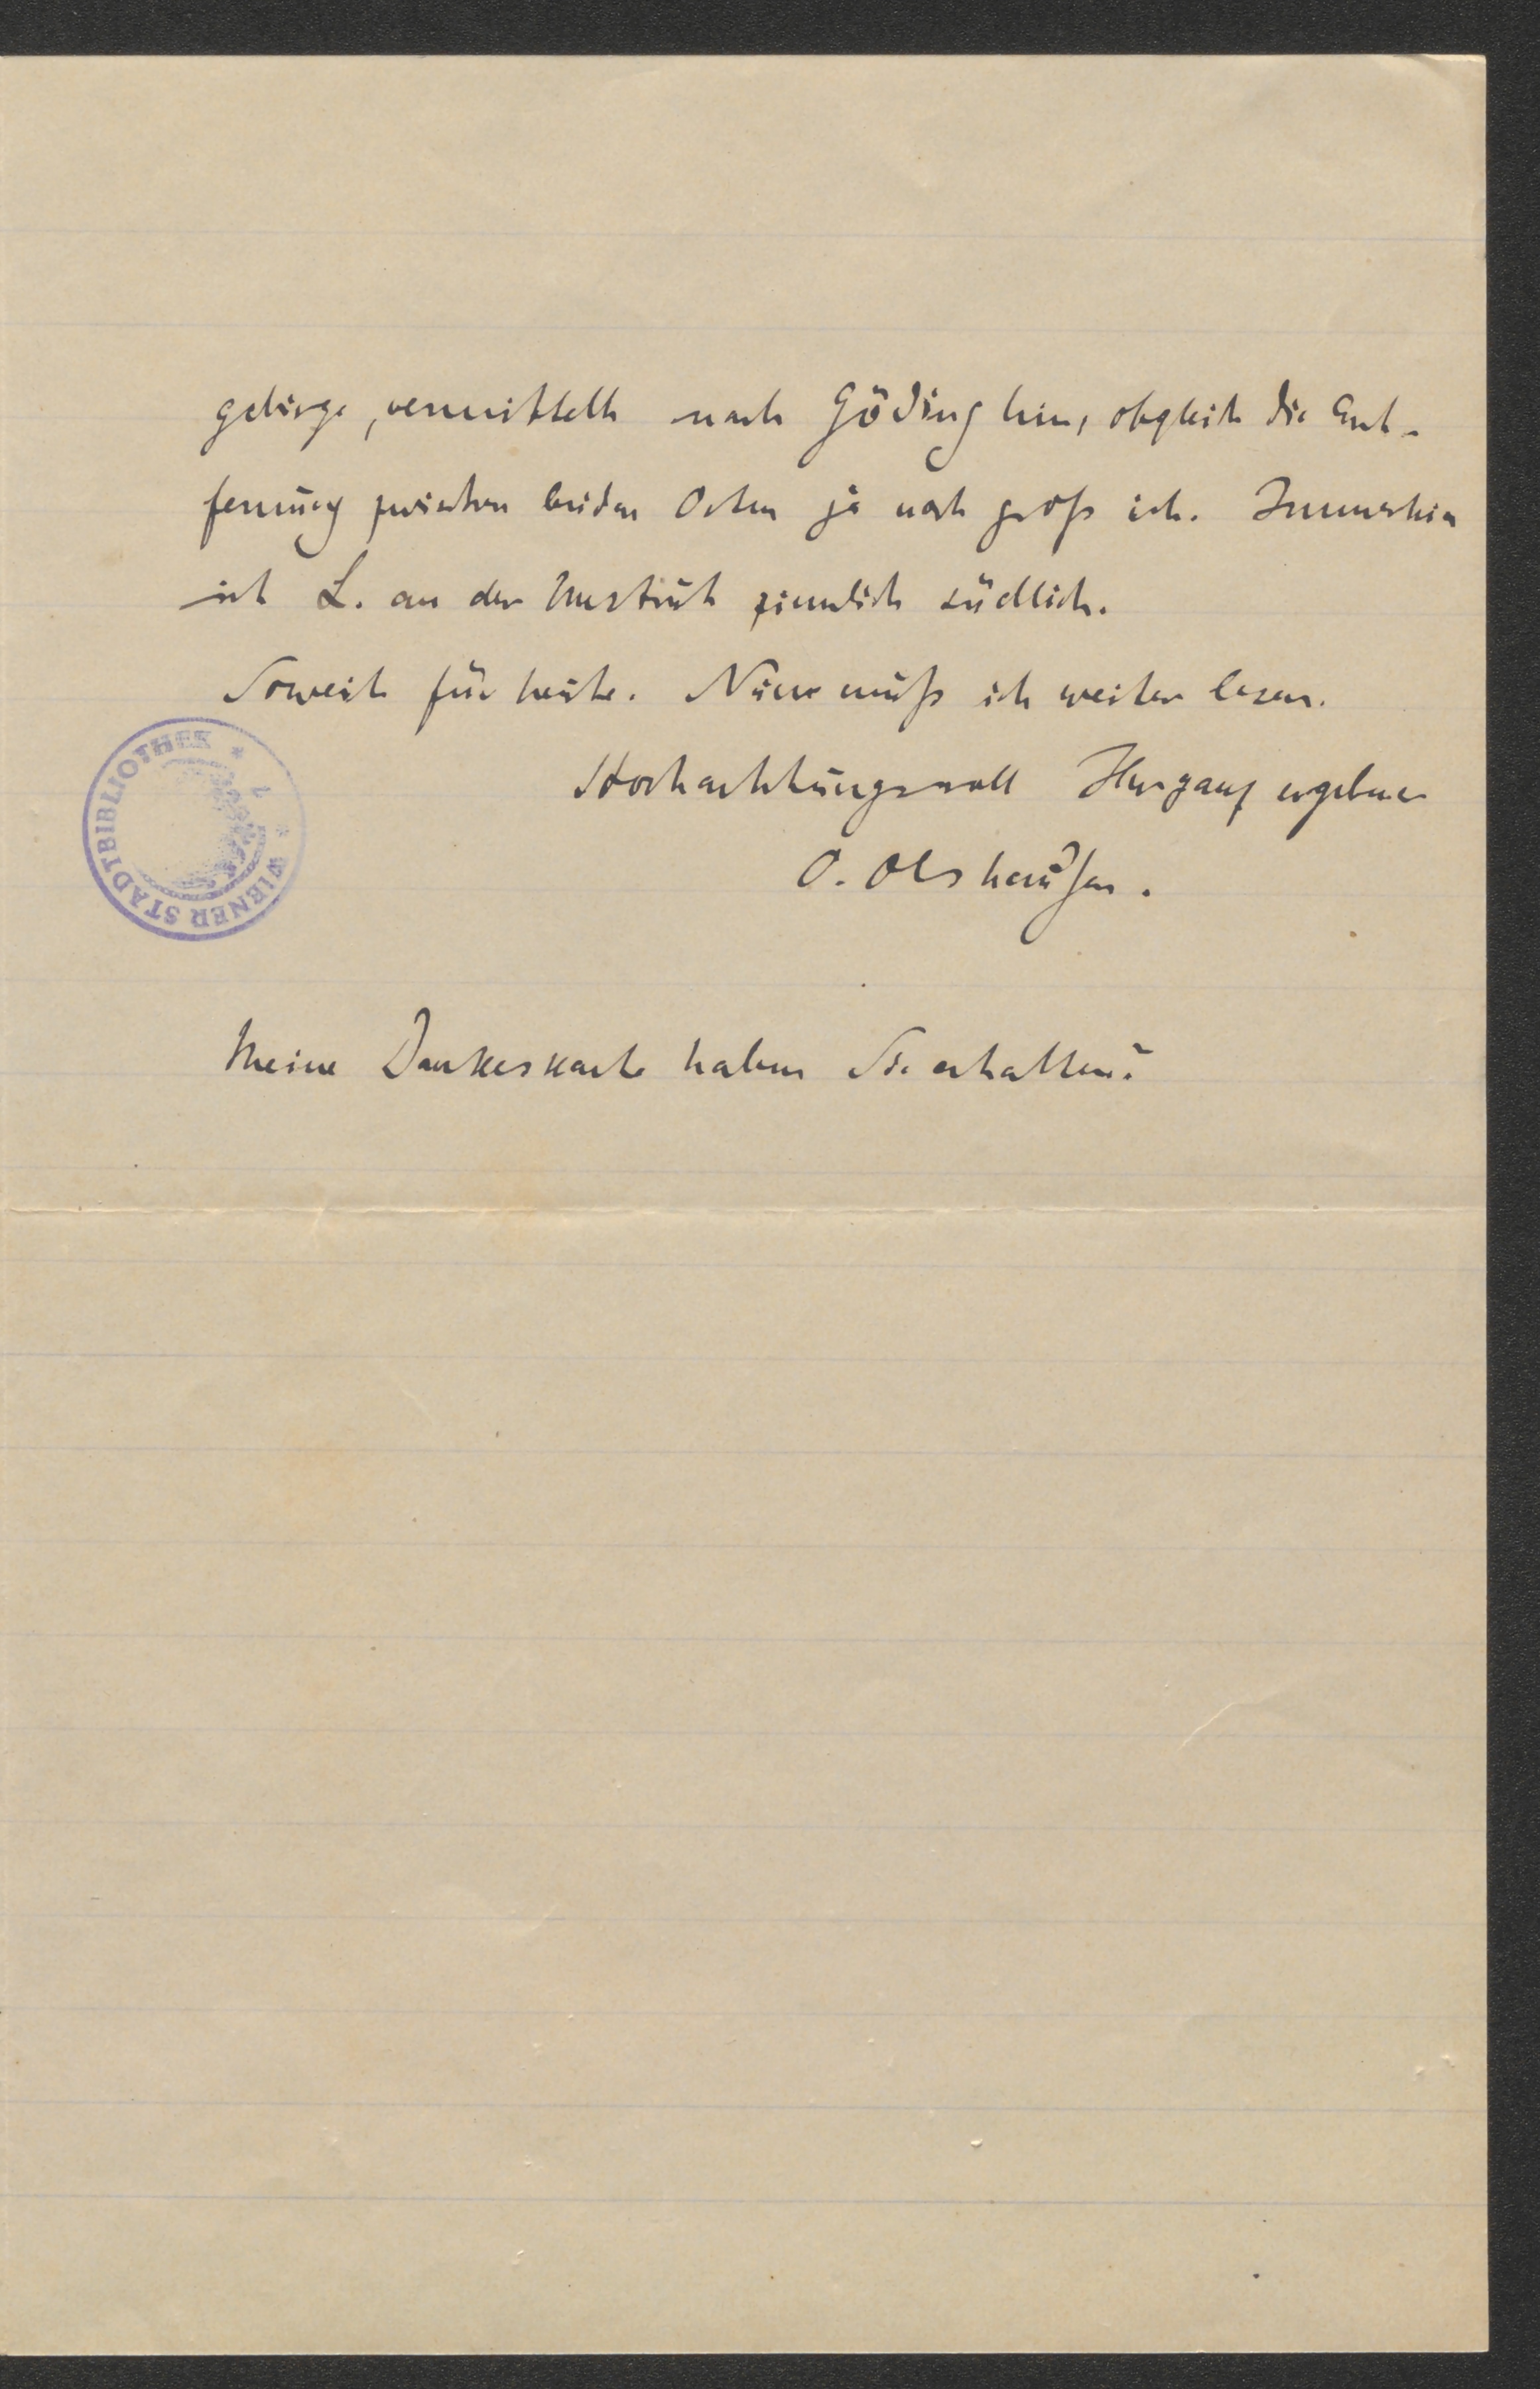 gebirge, vermittelt nach Göding hin, obgleich die Ent-
fernung zwischen beiden Orten ja noch groß ist. Immerhin
ist L. an der Unstrut ziemlich südlich.
Soweit für heute. Nun muß ich weiter lesen.
Hochachtungsvoll Ihr ganz ergebener
O. Olshausen.
WIENER STADTBIBLIOTHEK
Meine Dankeskarte haben Sie erhalten?